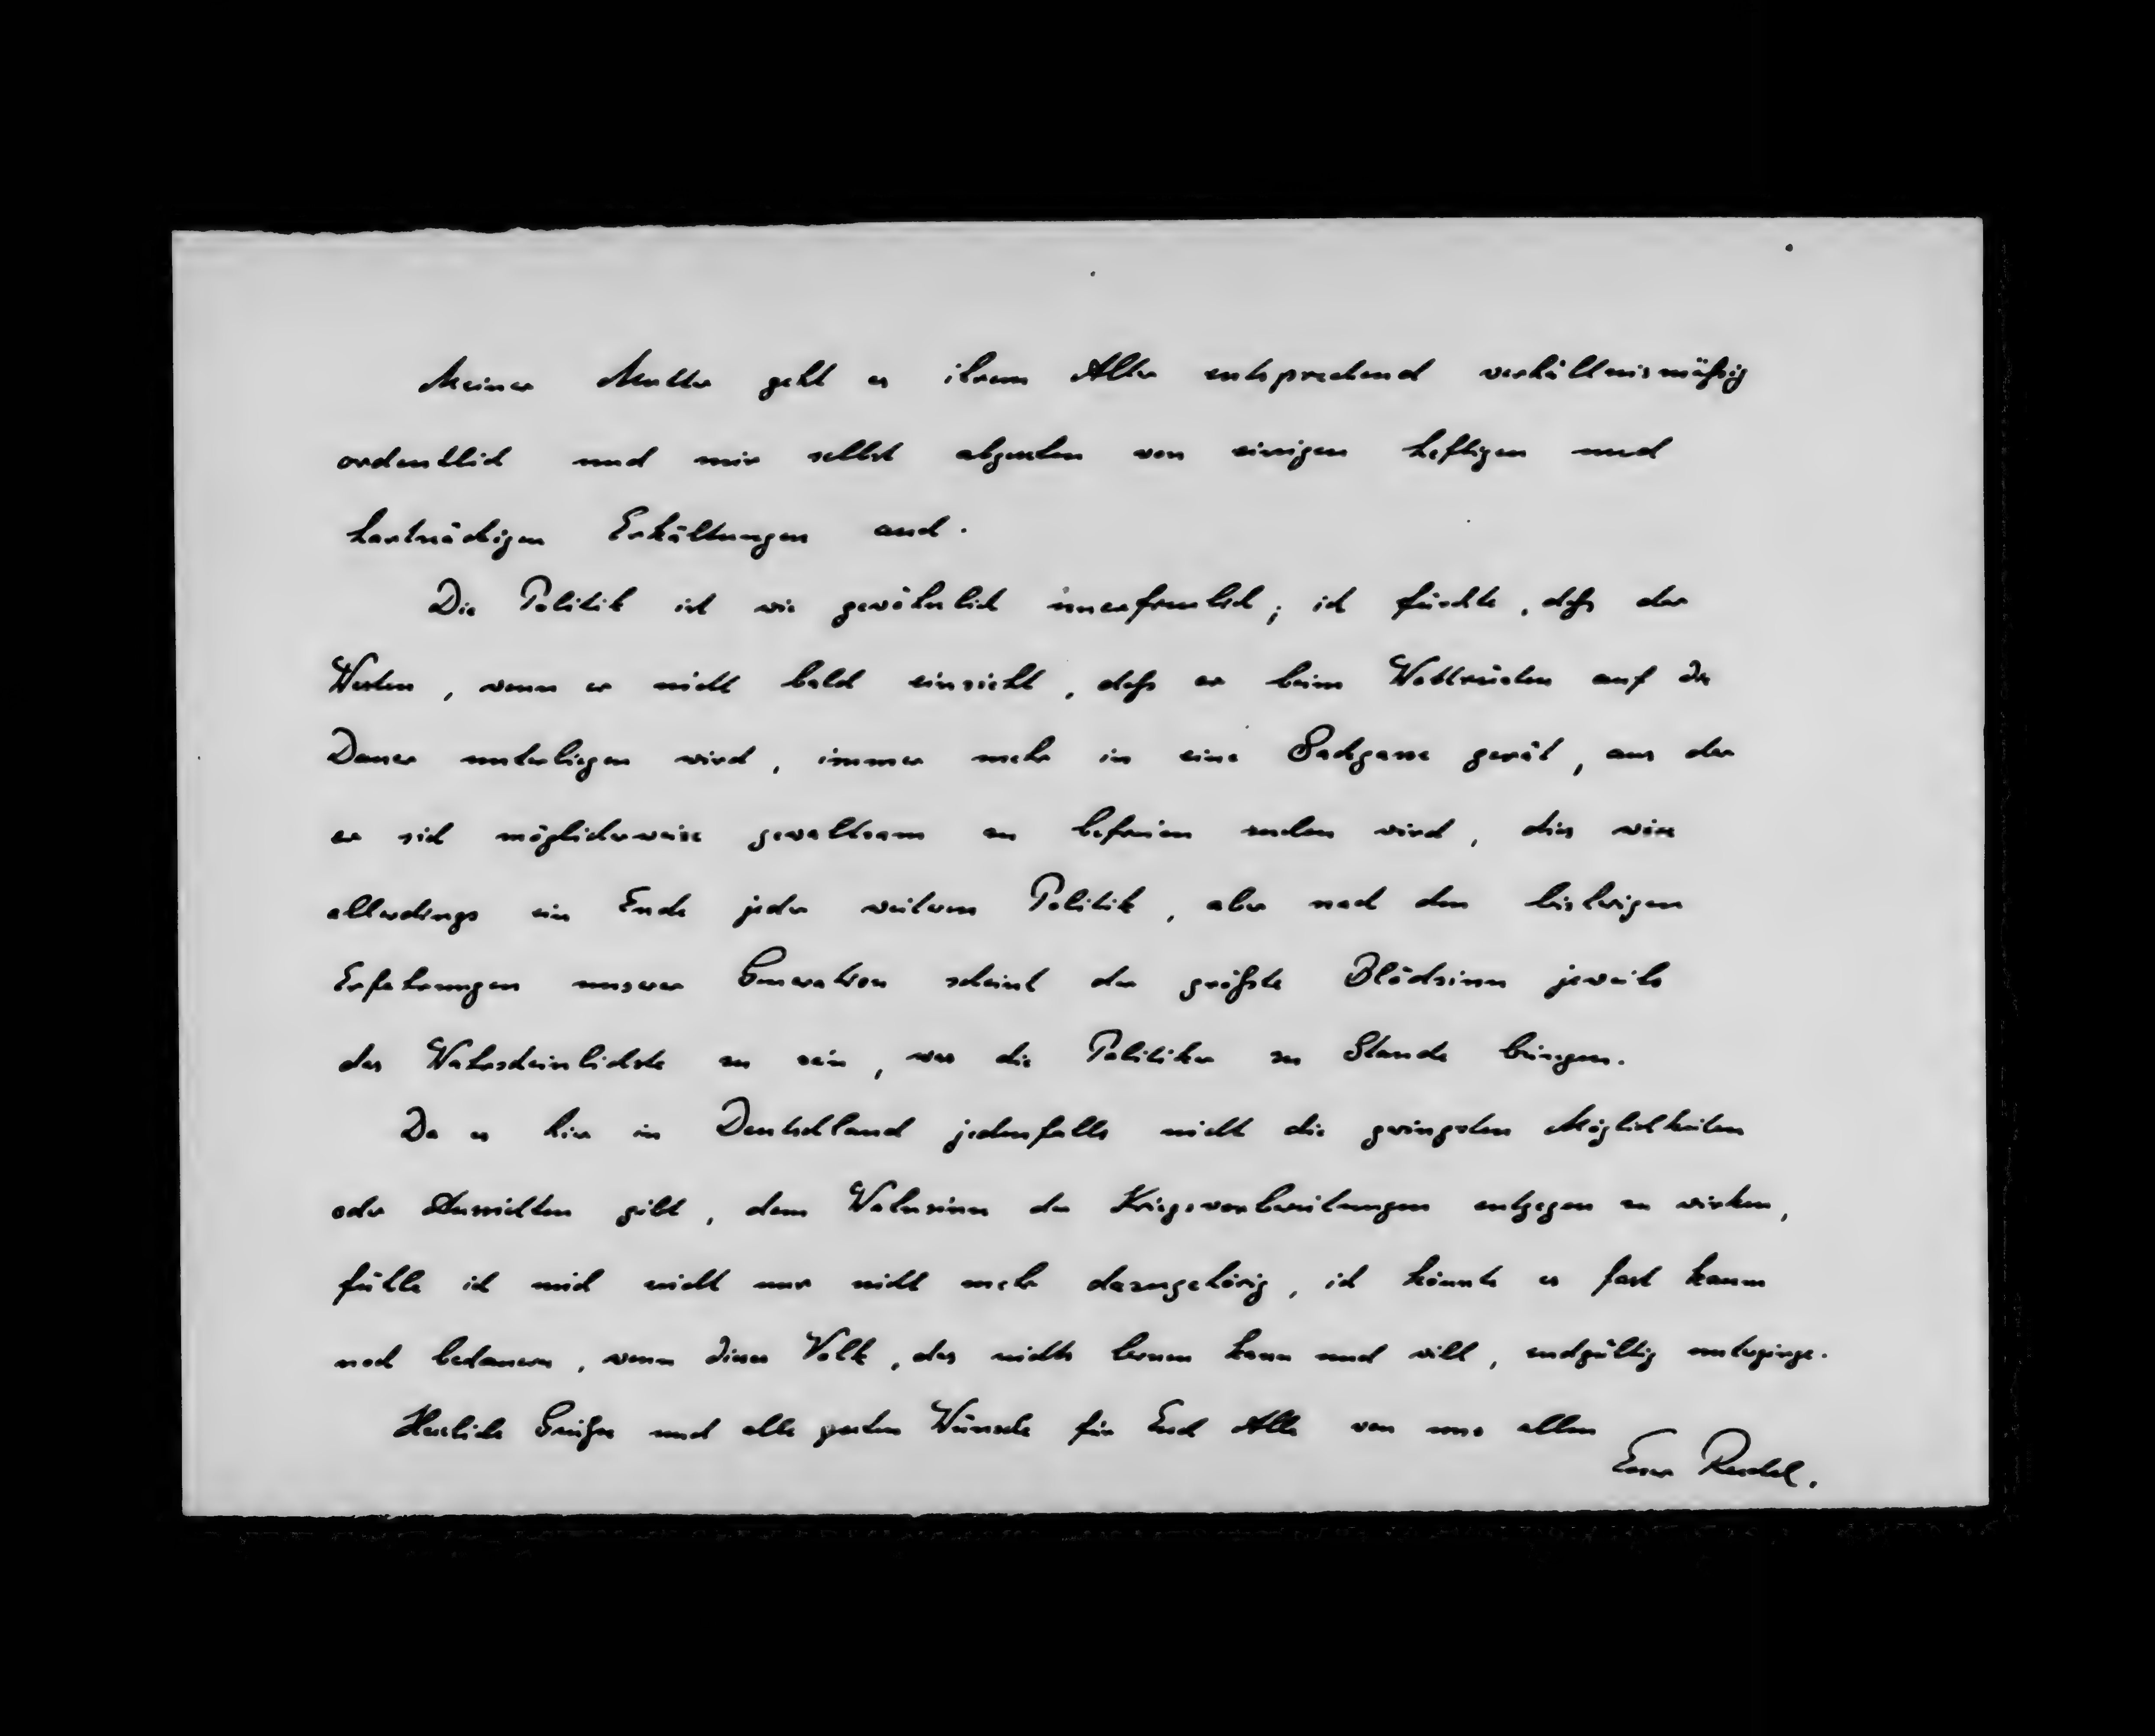 Meiner Mutter geht es ihrem Alter entsprechend verhältnismäßig
ordentlich und mir selbst abgesehen von einigen heftigen und
hartnäckigen Erkältungen auch.
Die Politik ist wie gewöhnlich unerfreulich; ich fürchte, daß der
Westen, wenn er nicht bald einsieht, daß er beim Wettrüsten auf die
Dauer unterliegen wird, immer mehr in eine Sackgasse gerät, aus der
er sich möglicherweise gewaltsam zu befreien suchen wird, dies wäre
allerdings ein Ende jeder weiteren Politik, aber nach den bisherigen
Erfahrungen unserer Generation scheint der größte Blödsinn jeweils
das Wahrscheinlichste zu sein, was die Politiker zu Stande bringen.
Da es hier in Deutschland jedenfalls nicht die geringsten Möglichkeiten
oder Aussichten gibt, dem Wahnsinn der Kriegsvorbereitungen entgegen zu wirken,
fühle ich mich nicht nur nicht mehr dazugehörig, ich könnte es fast kaum
noch bedauern, wenn dieses Volk, das nichts lernen kann und will, endgültig unterginge.
Herzliche Grüße und alle guten Wünsche für Euch Alle von uns allen
Euer